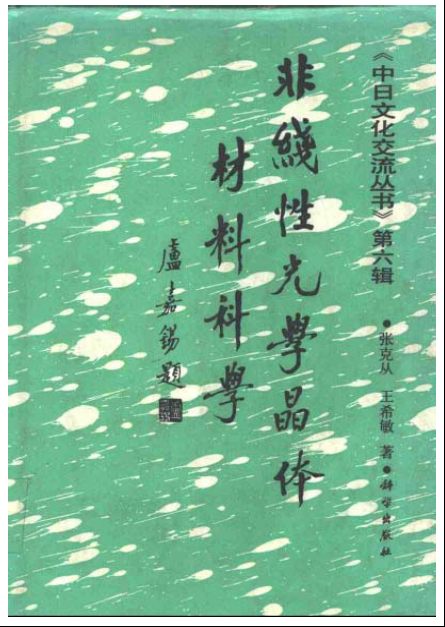 《中日文化交流丛书》第六辑
●张克从 王希敏 著●科学出版社
非綫性光學晶体
材料科學
盧嘉錫題